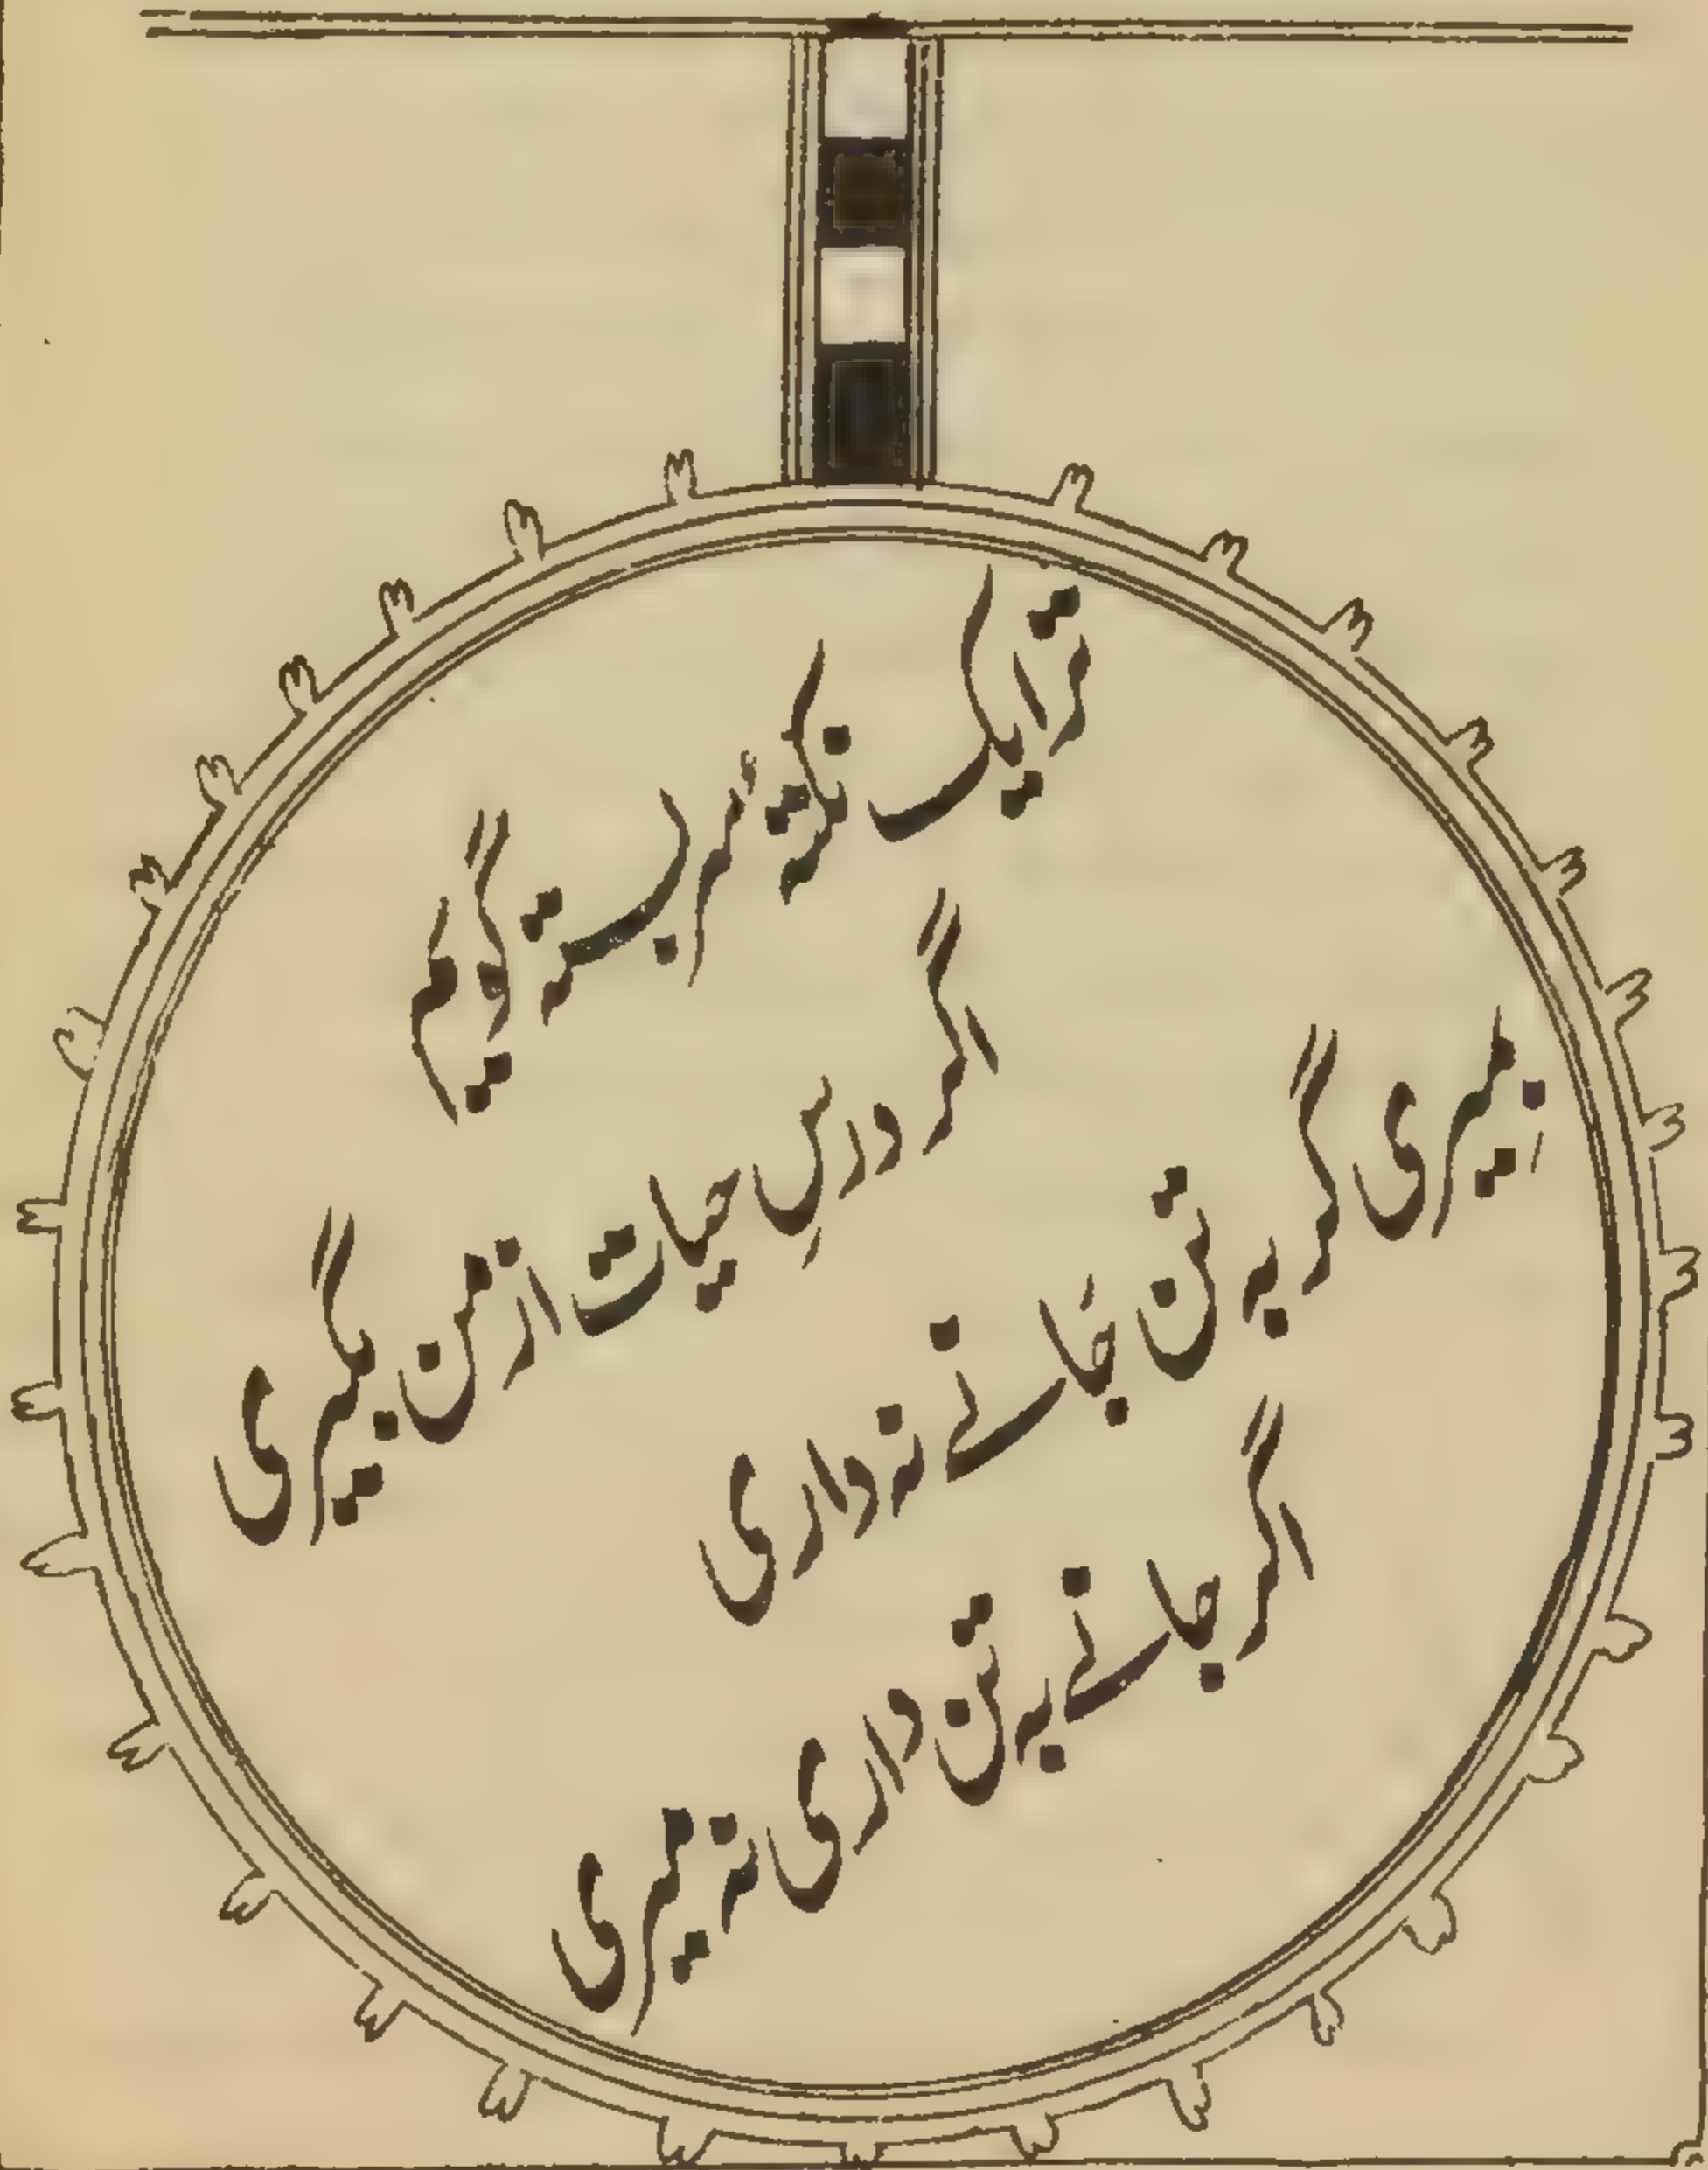 ترا یک نکتۂ سربستہ گویم
اگر درسِ حیات از من بگیری
بمیری گر بہ تن جانے نہ داری
اگر جانے بہ تن داری نہ میری